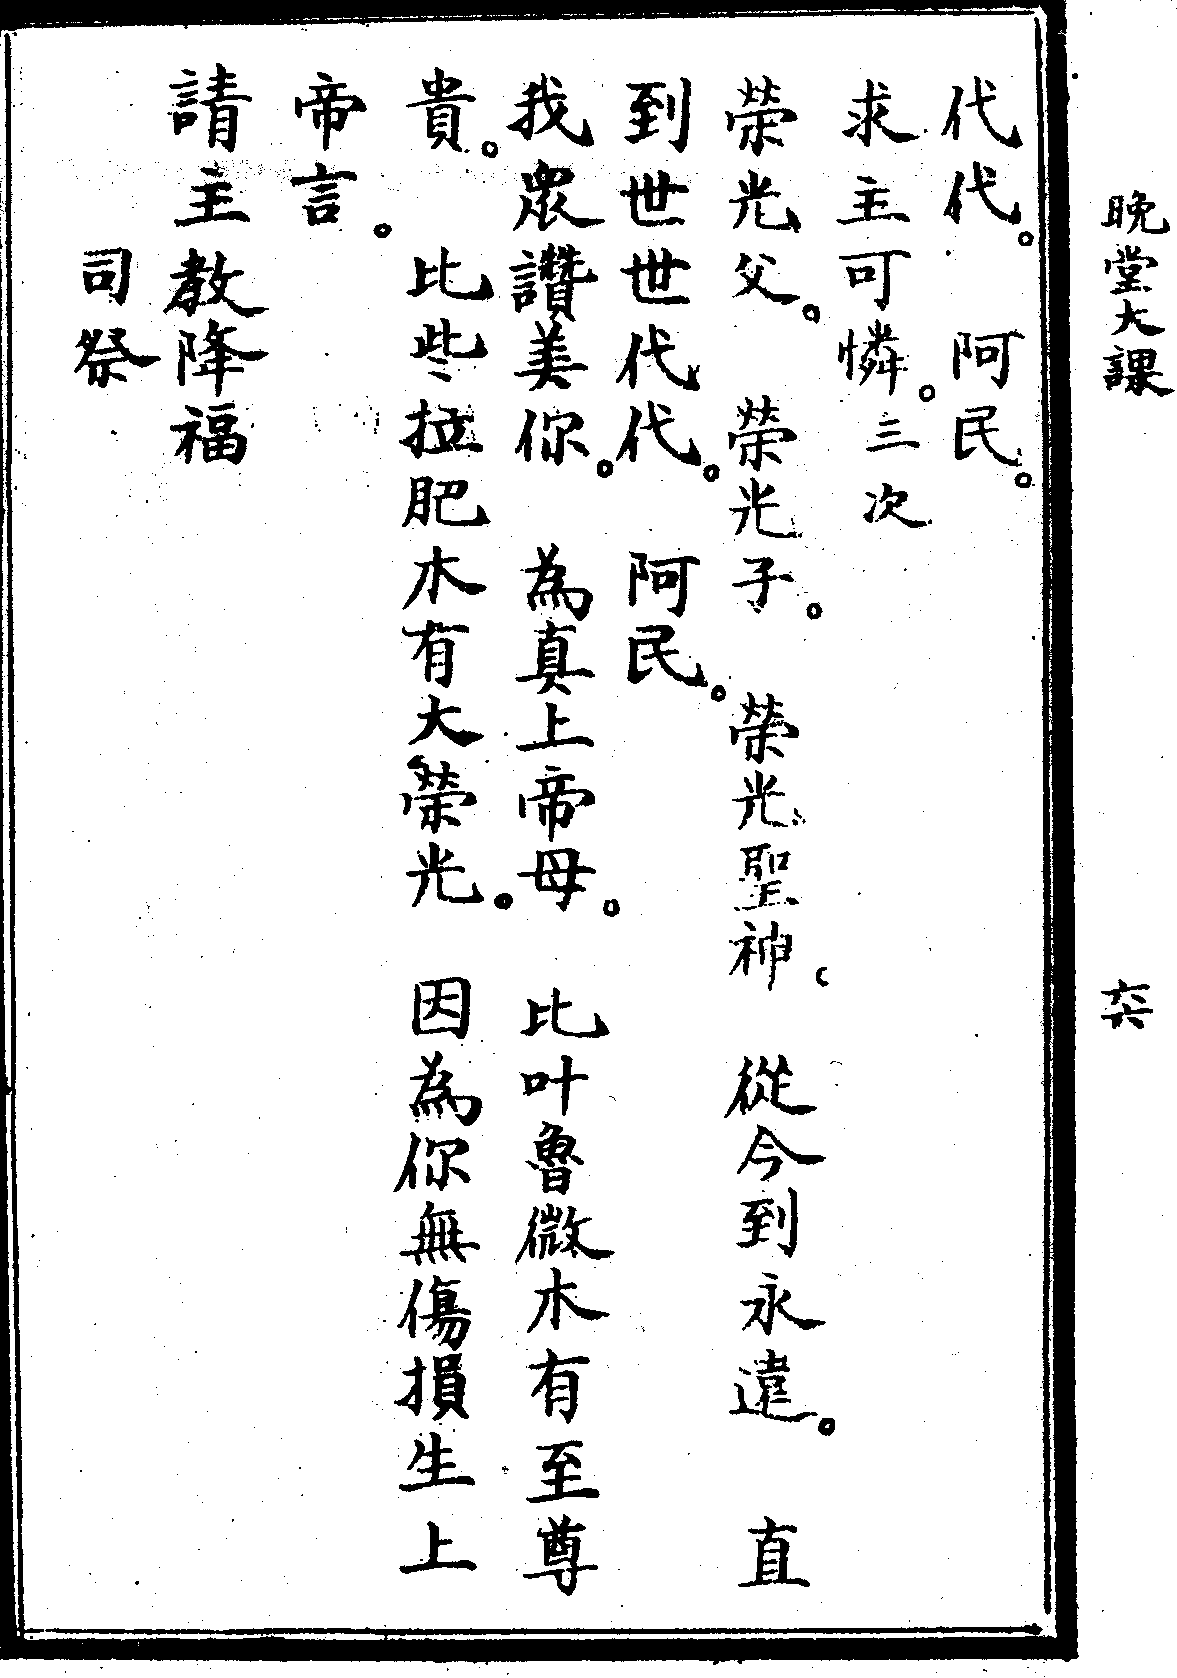 晚堂大課 六
代代。 阿民。
求主可憐。三次
榮光父。 榮光子。 榮光聖神。 從今到永遠。 直
到世世代代。 阿民。
我眾讚美你。 為真上帝母。 比叶魯微木有至尊
貴。 比些拉肥木有大榮光。 因為你無傷損生上
帝言。
請主教降福
司祭